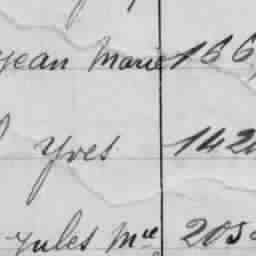 Jean Marie 166
Yves 142
Jules Mce 205